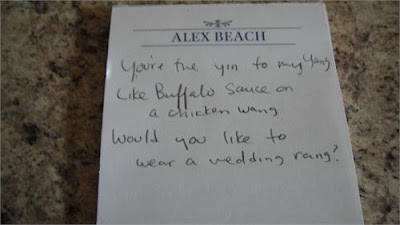 ALEX BEACH
You're the yin to my Yang
Like Buffalo Sauce on
a chicken wang
Would you like to
wear a wedding rang?